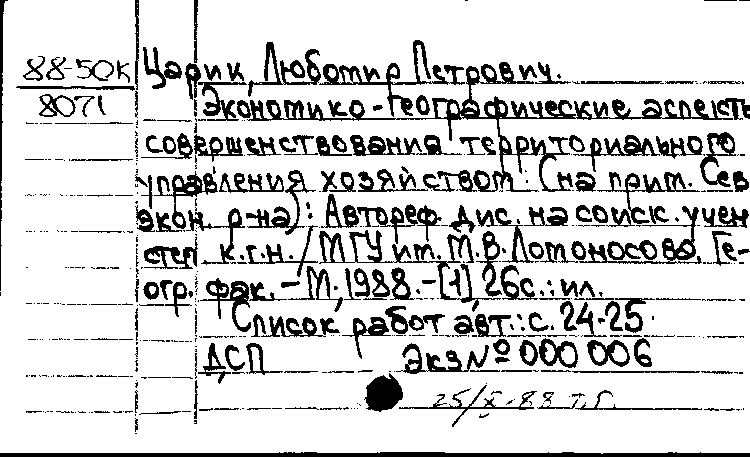 88-50К
8071
Царик, Любомир Петрович.
Экономико-географические аспекты
совершенствования территориального
управления хозяйством: (на прим. Сев
экон. р-на): Автореф. дис. на соиск. учен
степ к.г.н. / МГУ им. М.В. Ломоносова. Ге-
огр. фак. - М., 1988. - [1], 26с.: ил.
Список работ авт.: с. 24-25.
ДСП Экз № 000 006
25/X-88 т.г.